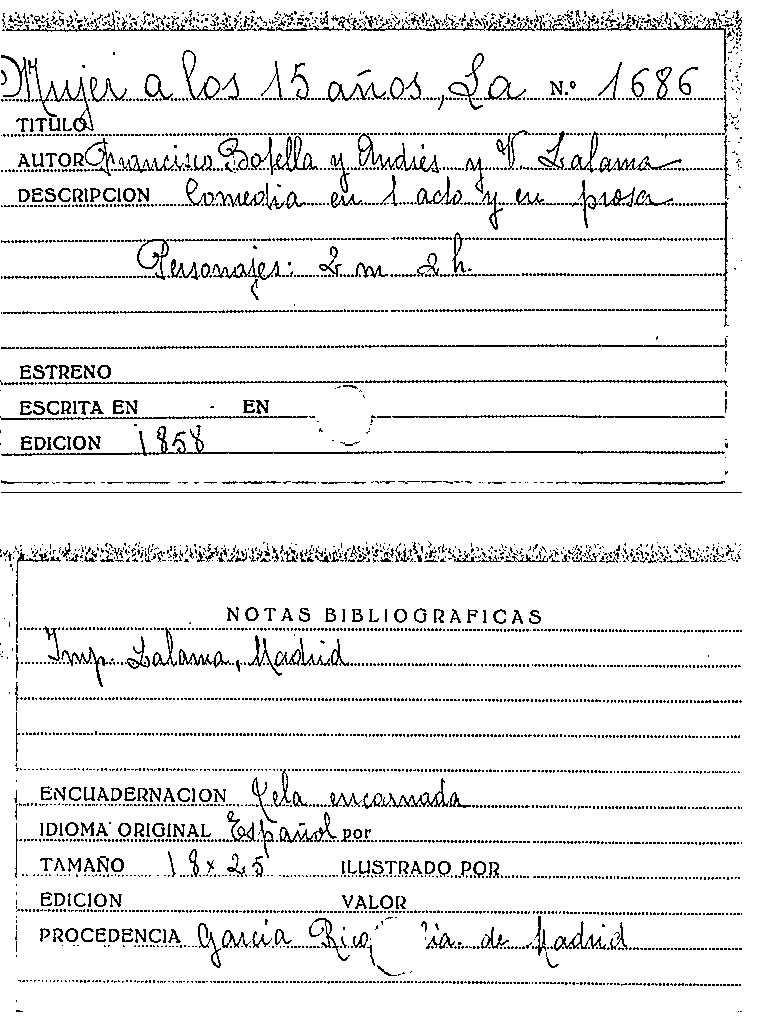 Mujer a los 15 años, La N.º 1686
TITULO
AUTOR Francisco Botella y Andrés y V. Lalama
DESCRIPCION Comedia en 1 acto y en prosa
Personajes: 2 m 2 h.
ESTRENO
ESCRITA EN EN
EDICION 1858
NOTAS BIBLIOGRAFICAS
Imp. Lalama, Madrid
ENCUADERNACION Tela encarnada
IDIOMA ORIGINAL Español por
TAMAÑO 18 x 25 ILUSTRADO POR
EDICION VALOR
PROCEDENCIA García Rico de Madrid